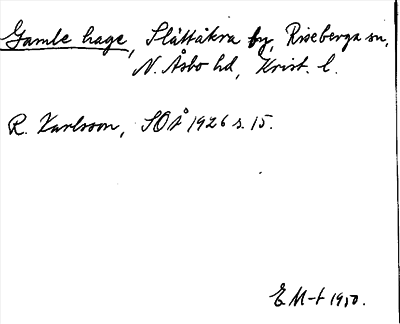 Gamle hage, Slättåkra by, Riseberga sn,
N. Åsbo hd, Krist. l.
R. Karlsson, SOÅ 1926 s. 15.
E M-t 1950.